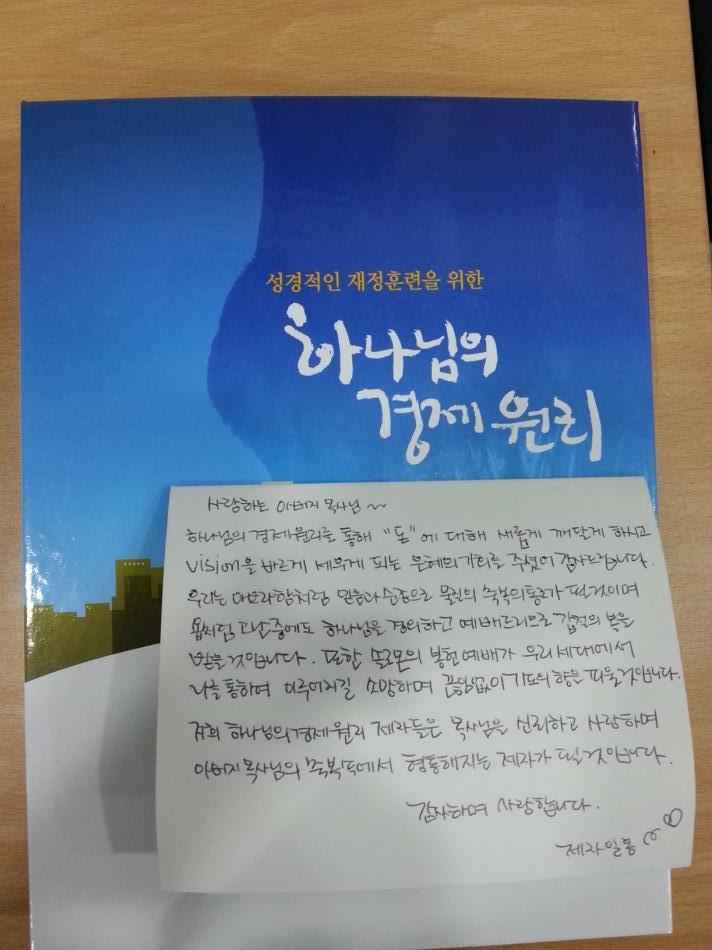 성경적인 재정훈련을 위한
하나님의
경제 원리
사랑하는 아버지 목사님~
하나님의 경제원리를 통해 "돈"에 대해 새롭게 깨닫게 하시고
vision을 바르게 세우게 되는 은혜의 기회를 주셨어 감사드립니다.
우리는 아브라함처럼 믿음과 순종으로 물질의 축복의 통로가 될것이며
욥처럼 고난중에도 하나님을 경외하고 예배드리므로 갑절의 복을
받을것입니다. 또한 솔로몬의 봉헌예배가 우리세대에서
나를 통하여 이루어지길 소망하며 끊임없이 기도의 향을 피울것입니다.
저희 하나님의 경제원리 제자들은 목사님을 신뢰하고 사랑하며
아버지 목사님의 축복속에서 형통해지는 제자가 될것입니다.
감사하며 사랑합니다.
제자일동